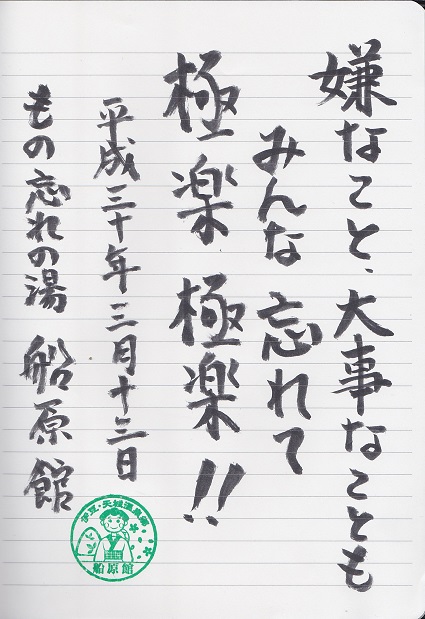 嫌なこと、大事なことも
みんな忘れて
極楽極楽!!
平成三十年三月十三日
もの忘れの湯 船原館
伊豆・天城湯ヶ島
船原館